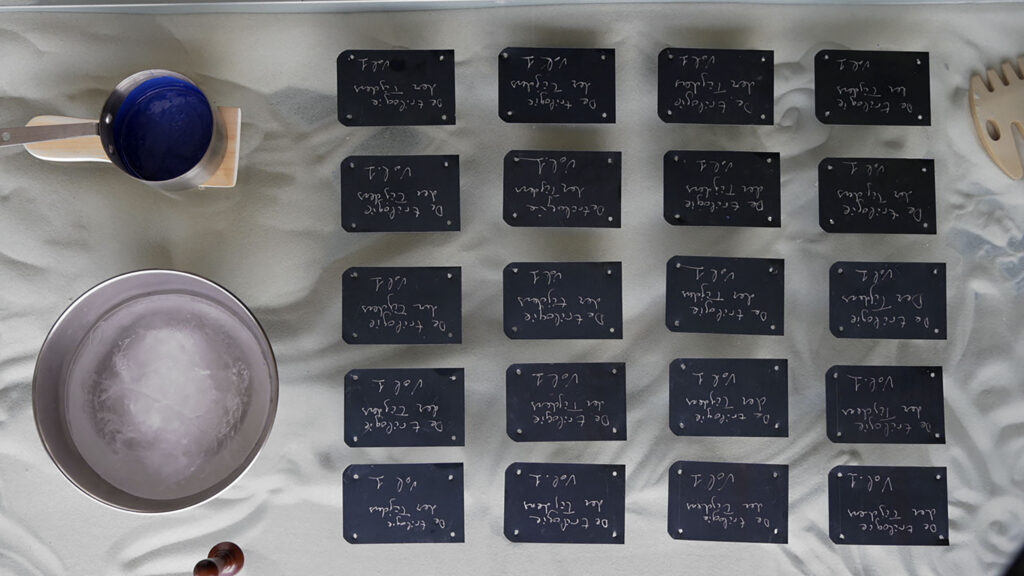 De trilogie
der Tijden
Vol. 1
De trilogie
der Tijden
Vol. 1
De trilogie
der Tijden
Vol. 1
De trilogie
der Tijden
Vol. 1
De trilogie
der Tijden
Vol. 1
De trilogie
der Tijden
Vol. 1
De trilogie
der Tijden
Vol. 1
De trilogie
der Tijden
Vol. 1
De trilogie
Der Tijden
De trilogie
der Tijden
Vol. 1
De trilogie
der Tijden
Vol. 1
De trilogie
der Tijden
Vol. 1
De trilogie
der Tijden
Vol. 1
De trilogie
der Tijden
Vol. 1
De trilogie
der Tijden
Vol. 1
De trilogie
der Tijden
Vol. 1
De trilogie
der Tijden
Vol. 1
De trilogie
der Tijden
Vol. 1
De trilogie
der Tijden
Vol. 1
De trilogie
der Tijden
Vol. 1